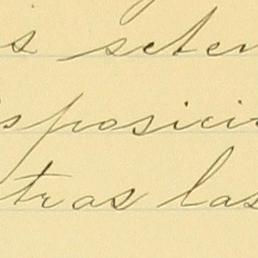 s seten
sposició
tras las